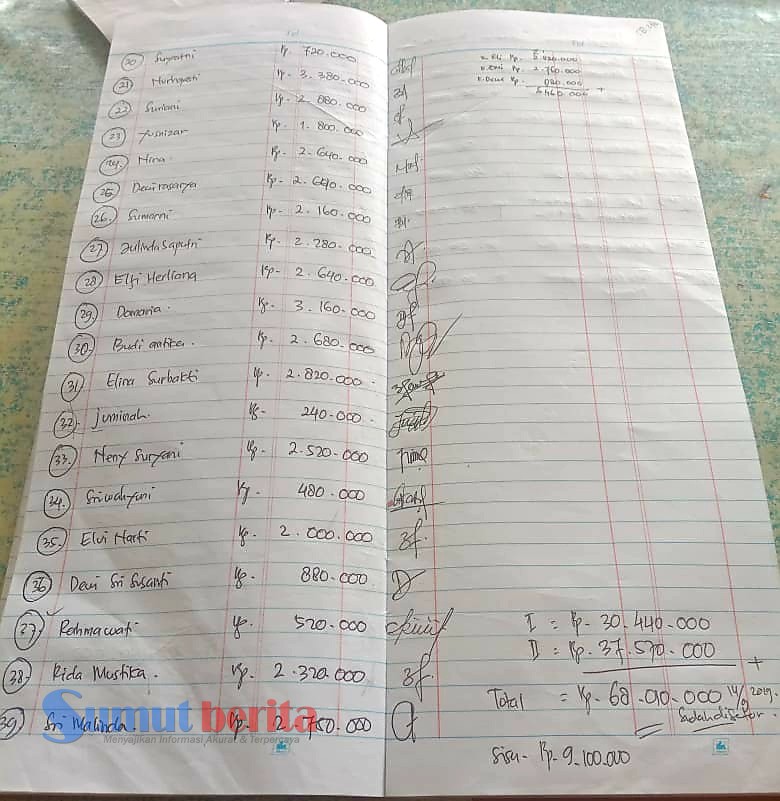 20 Suryatni Rp. 720.000
21 Nurhayati Rp. 3.380.000
22 Suriani Rp. 2.080.000
23 Yusnizar Rp. 1.800.000
24. Nina. Rp. 2.640.000
25 Dewi rasarya Rp. 2.640.000
26. Sumarni Rp. 2.160.000
27 Zulinda Saputri Rp. 2.280.000
28 Elfi Herliana Rp. 2.640.000
29. Damaria. Rp. 3.160.000
30. Budi antika. Rp. 2.680.000
31. Elina Surbakti Rp. 2.820.000
32. Juminah. Rp. 240.000
33. Neny Suryani Rp. 2.520.000
34. Sriwahyuni Rp. 480.000
35. Elvi Harti Rp. 2.000.000
36 Dewi Sri Susanti Rp. 880.000
37. Rahmawati Rp. 520.000
38. Rida Mustika. Rp. 2.320.000
39. Sri Malinda. Rp. 2.750.000
Sumut berita
Menyajikan Informasi Akurat & Terpercaya
Rp.
Rp. 2.760.000
Rp.
+
I = Rp. 30.440.000
II = Rp. 37.570.000
+
Total = Rp. 68.010.000
2019.
Sudah disetor.
Sisa - Rp. 9.100.000